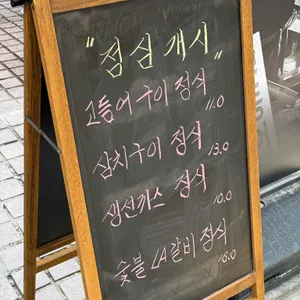 "점심 개시"
고등어 구이 정식
11.0
삼치구이 정식
13.0
생선까스 정식
10.0
숯불 LA갈비 정식
16.0